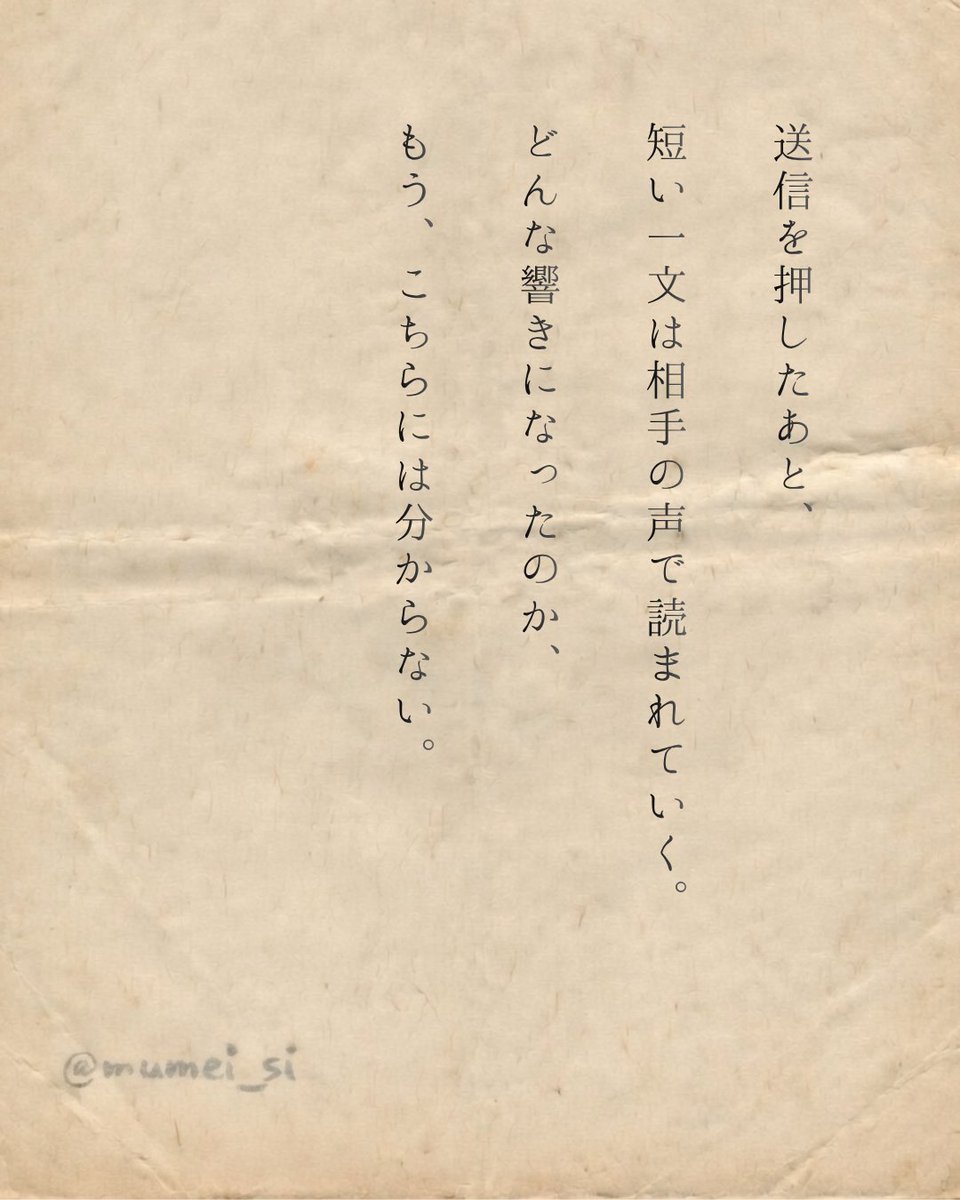 送信を押したあと、
短い一文は相手の声で読まれていく。
どんな響きになったのか、
もう、こちらには分からない。
@mumei_si